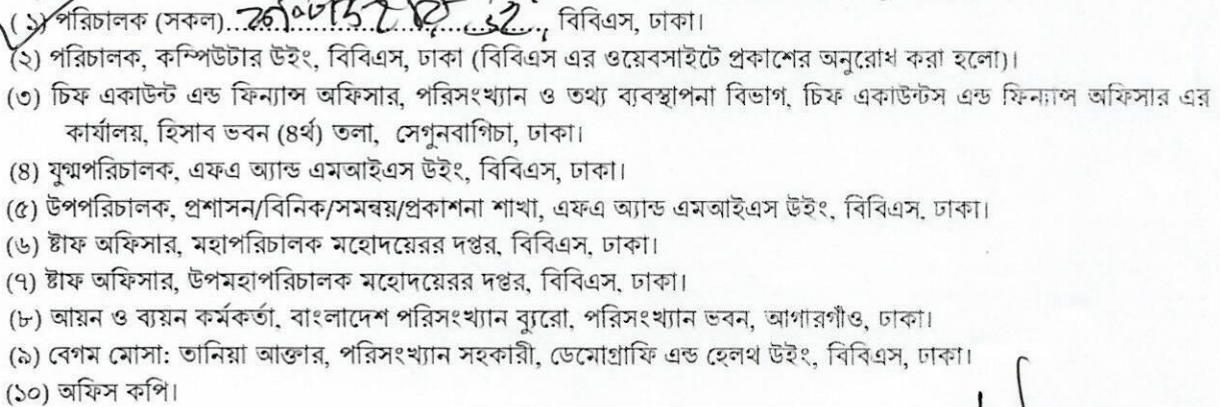 (১) পরিচালক (সকল)................................., বিবিএস, ঢাকা।
(২) পরিচালক, কম্পিউটার উইং, বিবিএস, ঢাকা (বিবিএস এর ওয়েবসাইটে প্রকাশের অনুরোধ করা হলো)।
(৩) চিফ একাউন্ট এন্ড ফিন্যান্স অফিসার, পরিসংখ্যান ও তথ্য ব্যবস্থাপনা বিভাগ, চিফ একাউন্টস এন্ড ফিন্যান্স অফিসার এর
কার্যালয়, হিসাব ভবন (৪র্থ) তলা, সেগুনবাগিচা, ঢাকা।
(৪) যুগ্মপরিচালক, এফএ অ্যান্ড এমআইএস উইং, বিবিএস, ঢাকা।
(৫) উপপরিচালক, প্রশাসন/বিনিক/সমন্বয়/প্রকাশনা শাখা, এফএ অ্যান্ড এমআইএস উইং, বিবিএস, ঢাকা।
(৬) ষ্টাফ অফিসার, মহাপরিচালক মহোদয়েরর দপ্তর, বিবিএস, ঢাকা।
(৭) ষ্টাফ অফিসার, উপমহাপরিচালক মহোদয়েরর দপ্তর, বিবিএস, ঢাকা।
(৮) আয়ন ও ব্যয়ন কর্মকর্তা, বাংলাদেশ পরিসংখ্যান ব্যুরো, পরিসংখ্যান ভবন, আগারগাঁও, ঢাকা।
(৯) বেগম মোসা: তানিয়া আক্তার, পরিসংখ্যান সহকারী, ডেমোগ্রাফি এন্ড হেলথ উইং, বিবিএস, ঢাকা।
(১০) অফিস কপি।